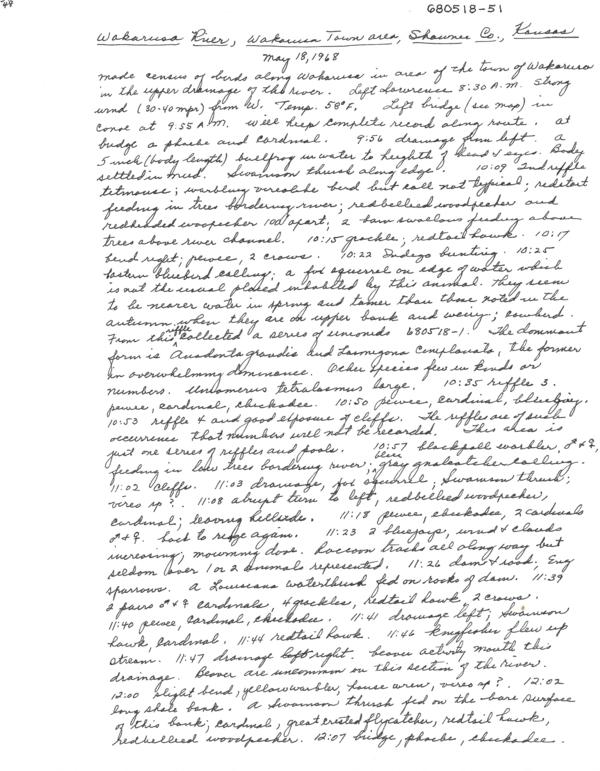 49
680518-51
Wakarusa River, Wakarusa Town area, Shawnee Co., Kansas
May 18, 1968
made census of birds along Wakarusa in area of the town of Wakarusa
in the upper drainage of this river. Left Lawrence 8:30 A.M. Strong
wind (30-40 mph) from W. Temp. 58°F. Left bridge (see map) in
canoe at 9:55 A.M. will keep complete record along route. at
bridge a phoebe and cardinal. 9:56 drainage from left. a
5 inch (body length) bullfrog in water to heighth of head & eyes. Body
settled in mud. Swainson thrush along edge. 10:09 2nd riffle
titmouse; warbling vireo like bird but call not typical; redstart
feeding in trees bordering river; redbellied woodpecker and
redheaded woodpecker 100' apart; 2 barn swallows feeding above
trees above river channel. 10:15 grackle; redtail hawk. 10:17
bend right; pewee, 2 crows. 10:22 Indigo bunting. 10:25
Eastern bluebird calling; a fox squirrel on edge of water which
is not the usual placed inhabited by this animal. They seem
to be nearer water in spring and tamer than those noted in the
autumn when they are on upper bank and weary; cowbird.
From this riffle collected a series of unionids 680518-1. The dominant
form is Anodonta grandis and Lasmigona complanata, the former
in overwhelming dominance. Other species few in kinds or
numbers. Uniomerus tetralasmus large. 10:35 riffle 3.
pewee, cardinal, chickadee. 10:50 pewee, cardinal, bluejay.
10:53 riffle 4 and good exposure of cliffs. The riffles are of such
occurrence that numbers will not be recorded. This area is
just one series of riffles and pools. 10:57 blackpoll warbler, ♂ & ♀,
feeding in low trees bordering river; blue gray gnatcatcher calling.
11:02 cliffs. 11:03 drainage, fox squirrel; Swainson thrush;
vireo sp?. 11:08 abrupt turn to left, redbellied woodpecker,
cardinal; leaving hillside. 11:18 pewee, chickadee, 2 cardinals
♂ & ♀. back to ridge again. 11:23 2 bluejays, wind & clouds
increasing; mourning dove. Raccoon tracks all along way but
seldom over 1 or 2 animals represented. 11:26 dam & road. Eng
sparrows. A Louisiana waterthrush fed on rocks of dam. 11:39
2 pairs ♂ & ♀ cardinals, 4 grackles, redtail hawk 2 crows.
11:40 pewee, cardinal, chickadee. 11:41 drainage left; Swainson
hawk, cardinal. 11:44 redtail hawk. 11:46 kingfisher flew up
stream. 11:47 drainage left right. beaver activity mouth this
drainage. Beaver are uncommon on this section of the river.
12:00 slight bend, yellow warbler, house wren, vireo sp?. 12:02
long shale bank. A Swainson thrush fed on the bare surface
of this bank; cardinal, great crested flycatcher, redtail hawk,
redbellied woodpecker. 12:07 bridge, phoebe, chickadee.